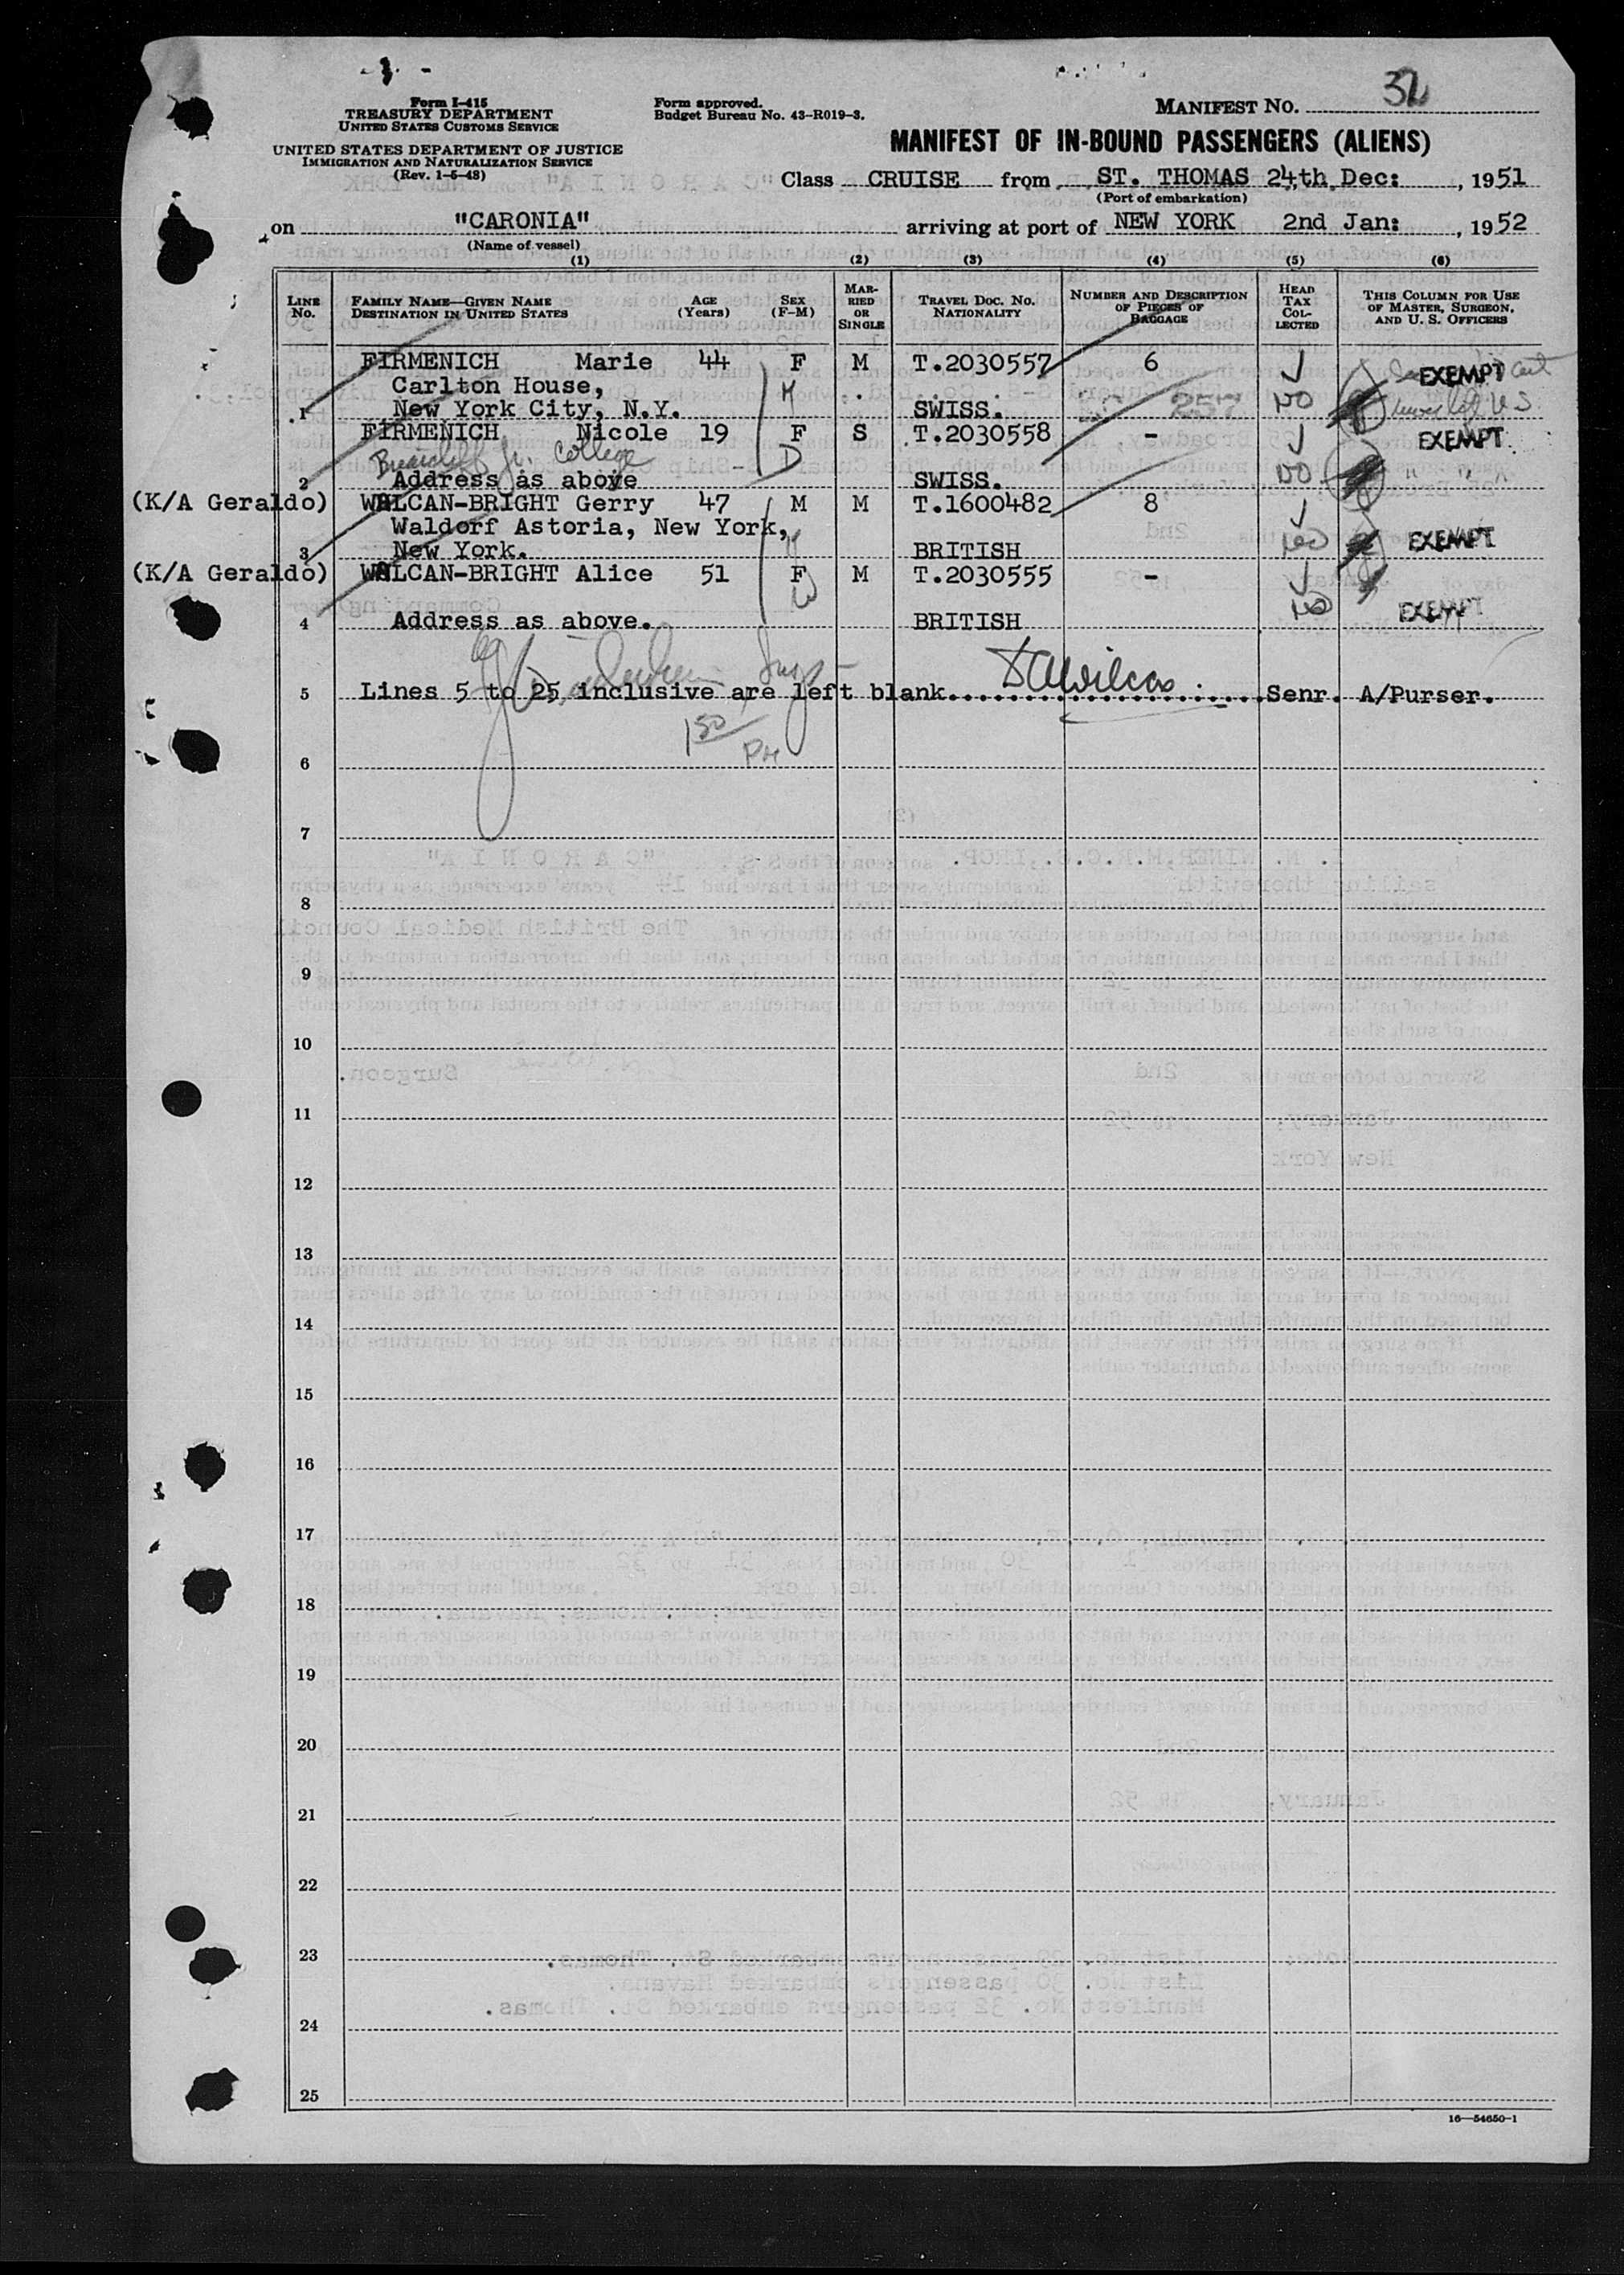 32
Form I-415
TREASURY DEPARTMENT
UNITED STATES CUSTOMS SERVICE
UNITED STATES DEPARTMENT OF JUSTICE
IMMIGRATION AND NATURALIZATION SERVICE
(Rev. 1-5-48)
Form approved.
Budget Bureau No. 43-R019-3.
MANIFEST NO.
MANIFEST OF IN-BOUND PASSENGERS (ALIENS)
Class CRUISE from ST. THOMAS 24th Dec: , 1951
(Port of embarkation)
on "CARONIA" arriving at port of NEW YORK 2nd Jan: , 1952
(Name of vessel)
(1) (2) (3) (4) (5) (6)
LINE No.
FAMILY NAME—GIVEN NAME
DESTINATION IN UNITED STATES
AGE (Years)
SEX (F-M)
MARRIED OR SINGLE
TRAVEL DOC. NO.
NATIONALITY
NUMBER AND DESCRIPTION OF PIECES OF BAGGAGE
HEAD TAX COLLECTED
THIS COLUMN FOR USE OF MASTER, SURGEON, AND U. S. OFFICERS
FIRMENICH Marie 44 F M T.2030557 6 EXEMPT
Carlton House, H
1 New York City, N.Y. SWISS. 257 NO U S
FIRMENICH Nicole 19 F S T.2030558 - EXEMPT
Briarcliff Jr. College D
2 Address as above SWISS. NO " " "
(K/A Geraldo) WALCAN-BRIGHT Gerry 47 M M T.1600482 8
Waldorf Astoria, New York, H
3 New York. BRITISH NO EXEMPT
(K/A Geraldo) WALCAN-BRIGHT Alice 51 F M T.2030555 -
W
4 Address as above. BRITISH NO EXEMPT
5 Lines 5 to 25 inclusive are left blank. Wilcox Senr. A/Purser.
1 50 PM
6
7
8
9
10
11
12
13
14
15
16
17
18
19
20
21
22
23
24
25
16—54650-1